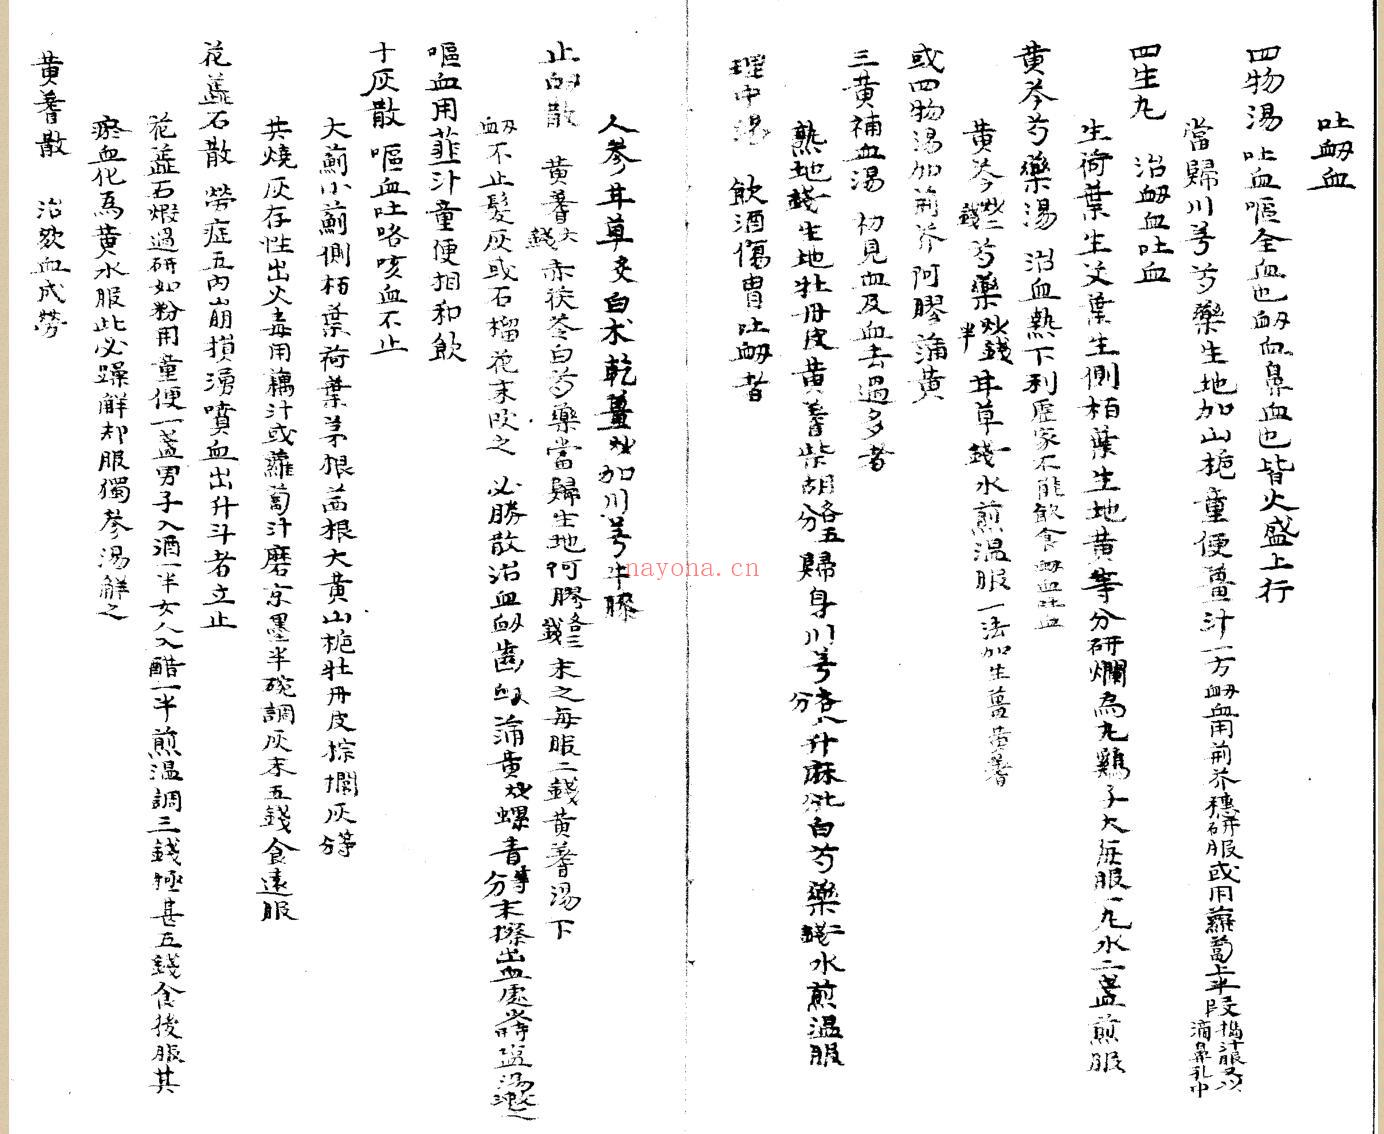 吐衂血
四物湯 吐血嘔全血也衂血鼻血也皆火盛上行
當歸川芎芍藥生地加山梔童便薑汁一方衂血用荆芥穗研服或用蘿蔔上半段搗汁服又以滴鼻孔中
四生丸 治衂血吐血
生荷葉生艾葉生側栢葉生地黄等分研爛為丸鷄子大每服一丸水二盞煎服
黄芩芍藥湯 治血熱下利虛家不能飲食衂血吐血
黄芩炒二錢芍藥炒錢半甘草一錢水煎温服一法加生薑黄蓍
或四物湯加荆芥阿膠蒲黄
三黄補血湯 初見血及血去過多者
熟地一錢生地牡丹皮黄蓍柴胡各五分歸身川芎各八分升麻 白芍藥二錢水煎温服
理中湯 飲酒傷胃吐衂者
人參甘草炙白朮乾薑炒加川芎牛膝
止衂散 黄蓍六錢赤茯苓白芍藥當歸生地阿膠各三錢末之每服二錢黄蓍湯下
衂不止髮灰或石榴花末吹之 必勝散治血衂齒衂蒲黄炒螺青等分末摻出血處 鹽湯漱之
嘔血用韮汁童便相和飲
十灰散 嘔血吐咯咳血不止
大薊小薊側栢葉荷葉茅根茜根大黄山梔牡丹皮棕櫚灰等分
共燒灰存性出火毒用藕汁或蘿蔔汁磨京墨半碗調灰末五錢食遠服
花蕋石散 勞症五內崩損湧噴血出升斗者立止
花蕋石煅過研如粉用童便一盞男子入酒一半女人入醋一半煎温調三錢極甚五錢食後服其
瘀血化為黄水服此必躁解却服獨參湯解之
黄蓍散 治欬血成勞
nayona.cn